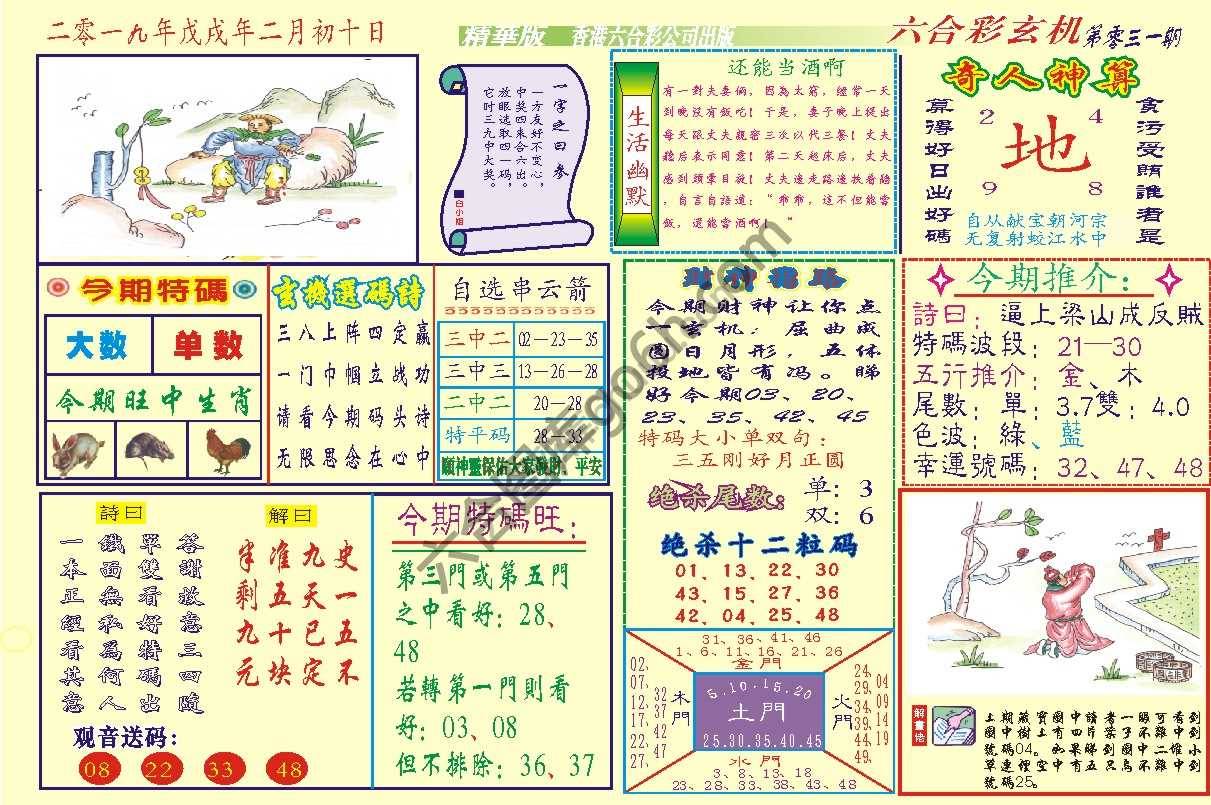 二零一九年戊戌年二月初十日
精華版 香港六合彩公司出版
六合彩玄机 第零三一期
一字之曰参
一方友好不变心，
中奖四来合六出。
放眼选取四一码，
它吋三九中大奖。
白小姐
生活幽默
还能当酒啊
有一對夫妻倆，因為太窮，經常一天
到晚沒有飯吃！于是，妻子晚上提出
每天跟丈夫親密三次以代三餐！丈夫
聽后表示同意！第二天起床后，丈夫
感到頭暈目眩！丈夫遠走路邊扶着牆
，自言自語道：“乖乖，這不但能當
飯，還能當酒啊！“
奇人神算
算得好日出好碼
2 4
地
9 8
貪污受賄誰者是
自从献宝朝河宗
无复射蛟江水中
今期特碼
大数 单数
今期旺中生肖
玄機選碼詩
三八上阵四定赢
一门巾帼立战功
请看今期码头诗
无限思念在心中
自选串云箭
三中二 02－23－35
三中三 13－26－28
二中二 20－28
特平码 28－33
願神靈保佑大家發財、平安
财神指路
今期财神让你点
一玄机：屈曲成
圆日月形，五体
投地皆有冯。睇
好今期03、20、
23、35、42、45
特码大小单双句：
三五刚好月正圆
绝杀尾数：
单：3
双：6
绝杀十二粒码
01、13、22、30
43、15、27、36
42、04、25、48
今期推介：
詩曰：逼上梁山成反賊
特碼波段：21—30
五行推介：金、木
尾數：單：3.7雙：4.0
色波：綠、藍
幸運號碼：32、47、48
詩曰
一本正經看其意
鐵面無私為何人
單雙看好特碼出
答謝故意三四隨
解曰
半准九史
剩五天一
九十已五
元块定不
观音送码：
08 22 33 48
今期特碼旺：
第三門或第五門
之中看好：28、
48
若轉第一門則看
好：03、08
但不排除：36、37
31、36、41、46
1、6、11、16、21、26
金門
02、
07、
12、
17、
22、
27、
32
37
42
47
木門
5.10.15.20
土門
25.30.35.40.45
火門
24、
29、
34、
39、
44、
49、
04
09
14
19
水門
3、8、13、18
23、28、33、38、43、48
解畫悟
上期藏寶圖中讀者一眼可看到
圖中樹上有四片葉子不難中到
號碼04。如果睇到圖中二堆小
草連裡空中有五只鳥不難中到
號碼25。
六合图库go6h.com